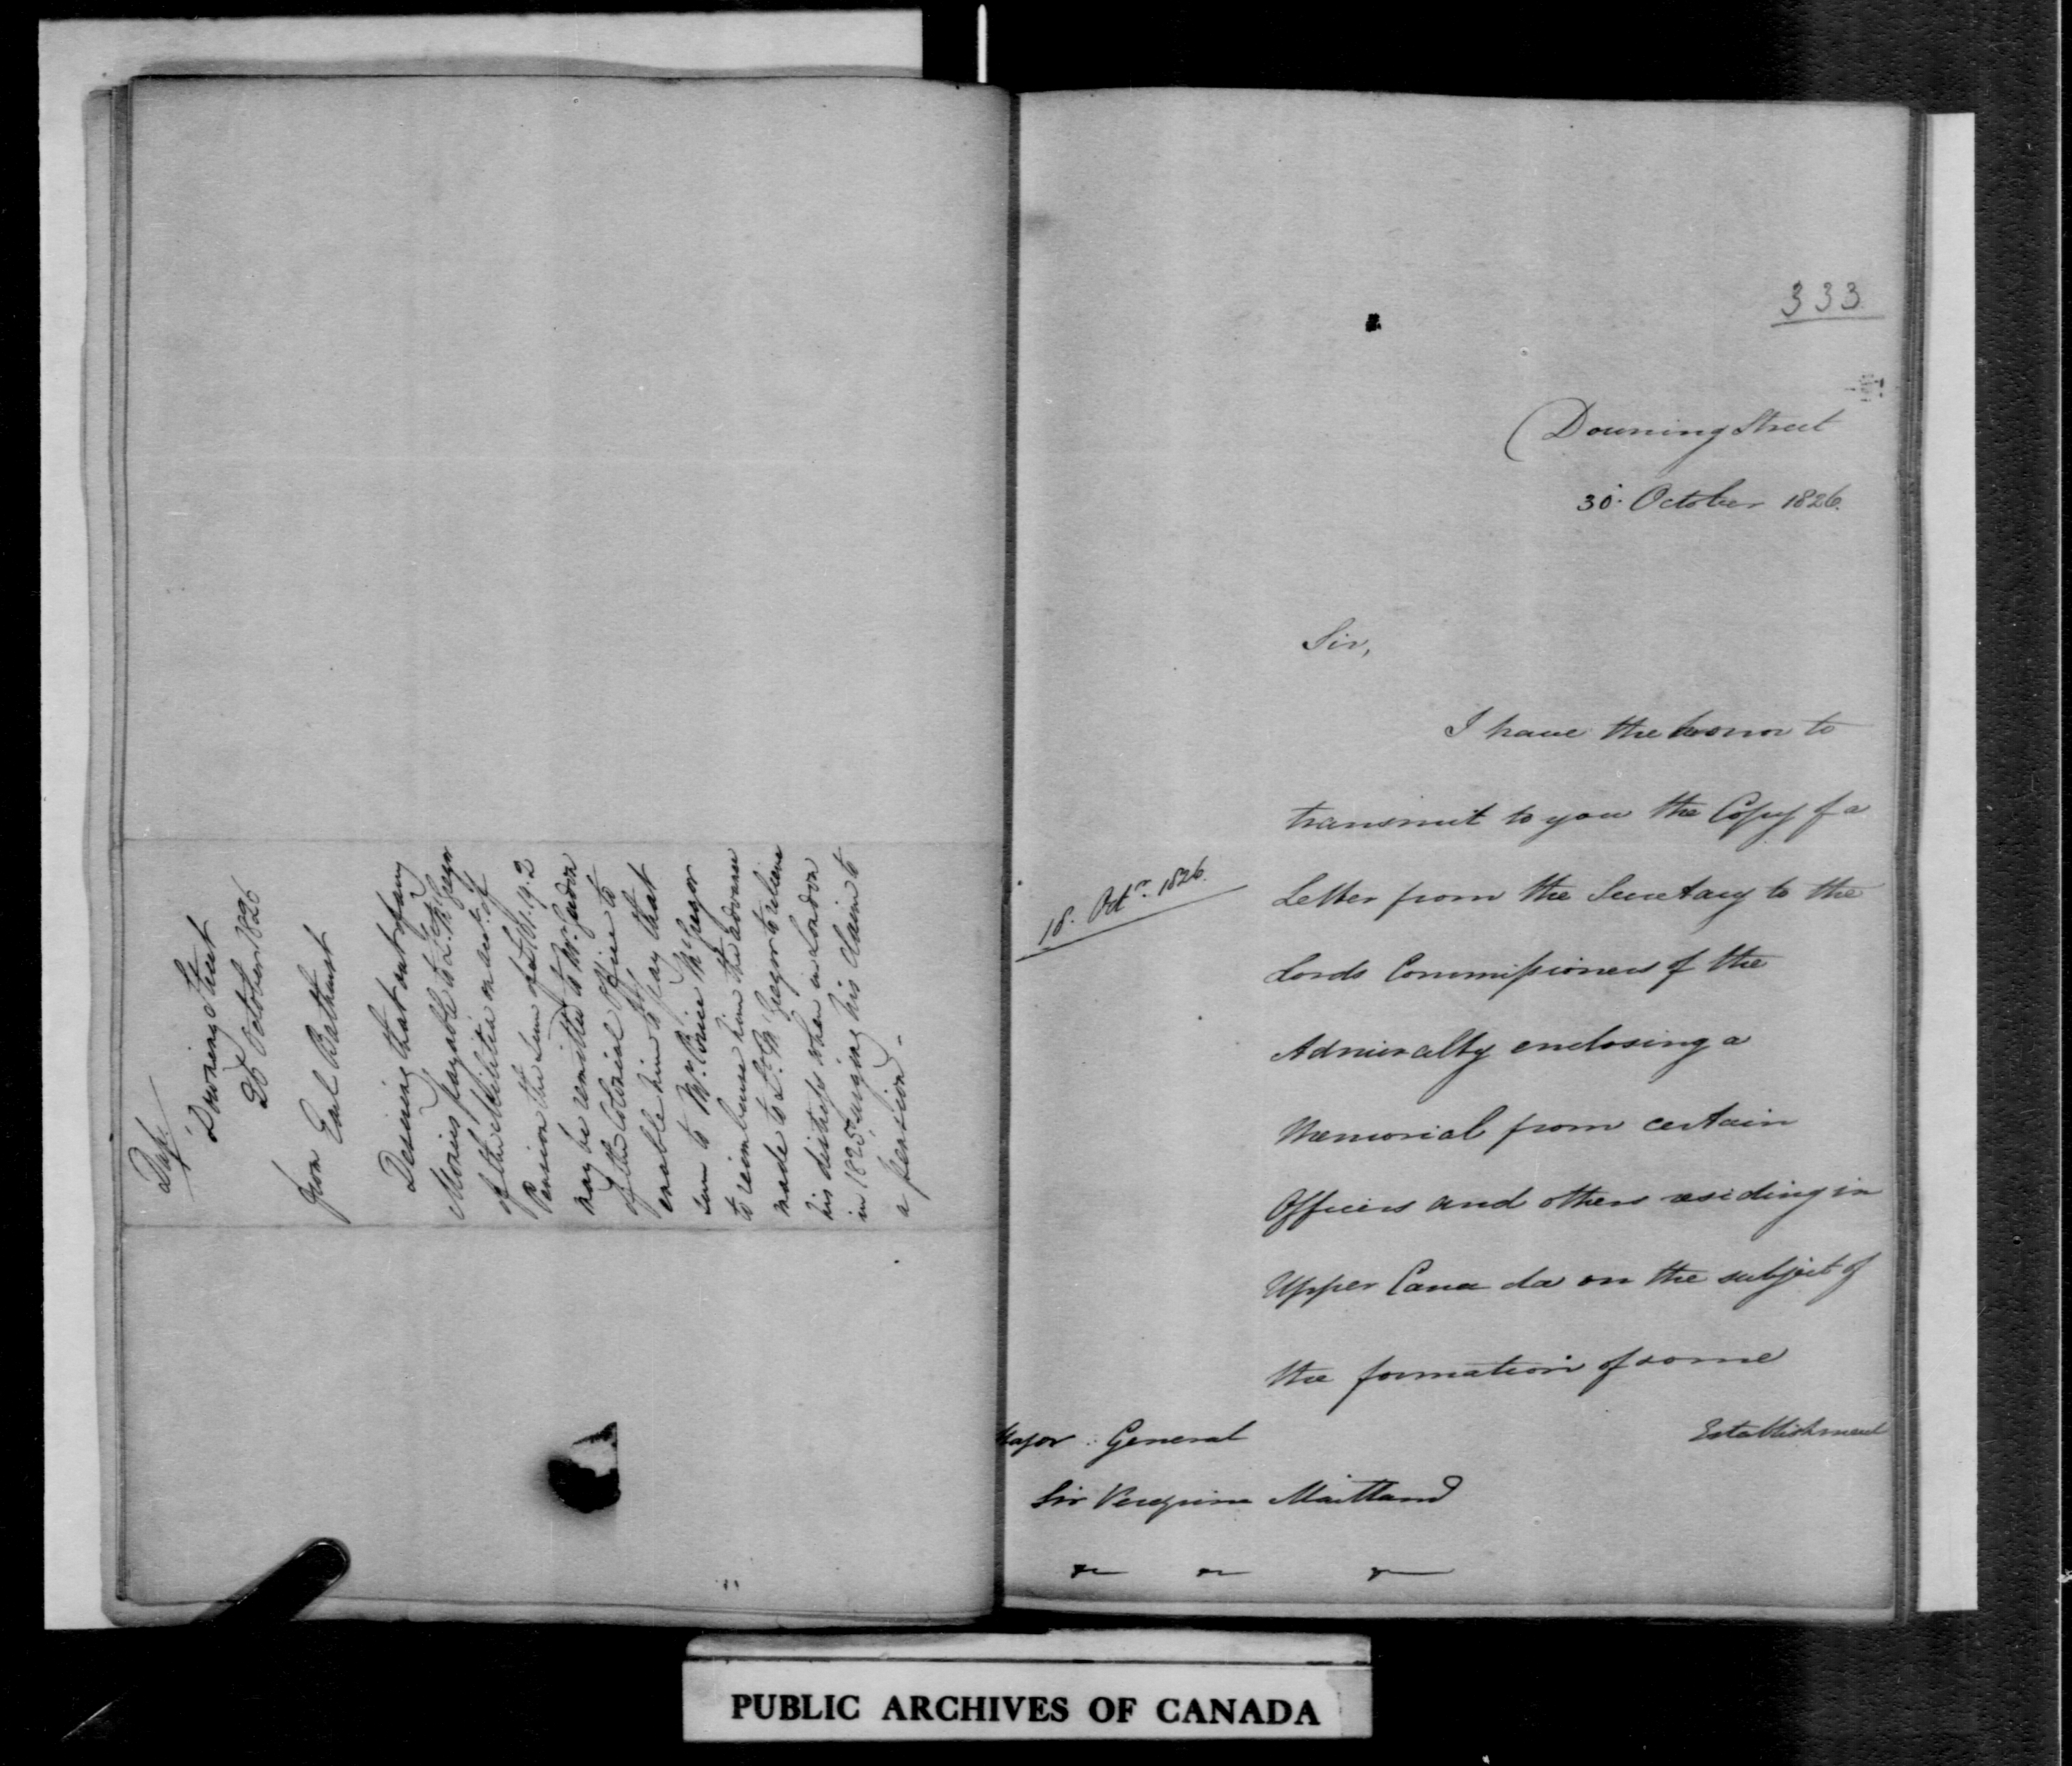 Desp.
Downing Street
20 October 1826
From Earl Bathurst
Desiring that out of any
Monies payable to Lt. McGregor
of the Militia on acct. of
Pension the Sum of
may be remitted to Mr.
of the Colonial Office to
enable him to pay that
sum to Mr. McGregor
to reimburse him the advance
made to Lt. McGregor to relieve
his distress when in London
in 1825 urging his claim to
a pension -
333
Downing Street
30. October 1826.
Sir,
I have the honor to
transmit to you the Copy of a
18. Octr. 1826.
Letter from the Secretary to the
Lords Commissioners of the
Admiralty enclosing a
Memorial from certain
Officers and others residing in
Upper Canada on the subject of
the formation of some
Establishment
Major General
Sir Peregrine Maitland
PUBLIC ARCHIVES OF CANADA